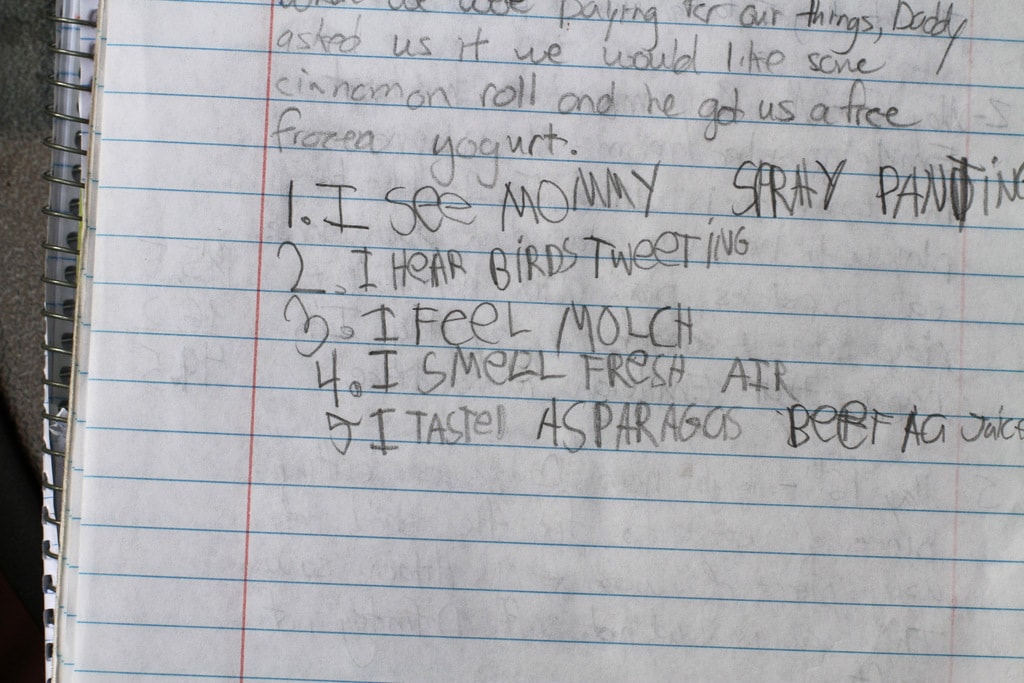 we were paying for our things, Daddy
asked us if we would like some
cinnamon roll and he got us a free
frozen yogurt.
1. I See MOMMY SPRAY PANTING
2. I HeAR BiRDS TWeeTiNG
3. I FeeL MOLCH
4. I SMeLL FReSH AIR
5 I TASTeD ASPARAGUS BeeF Juice